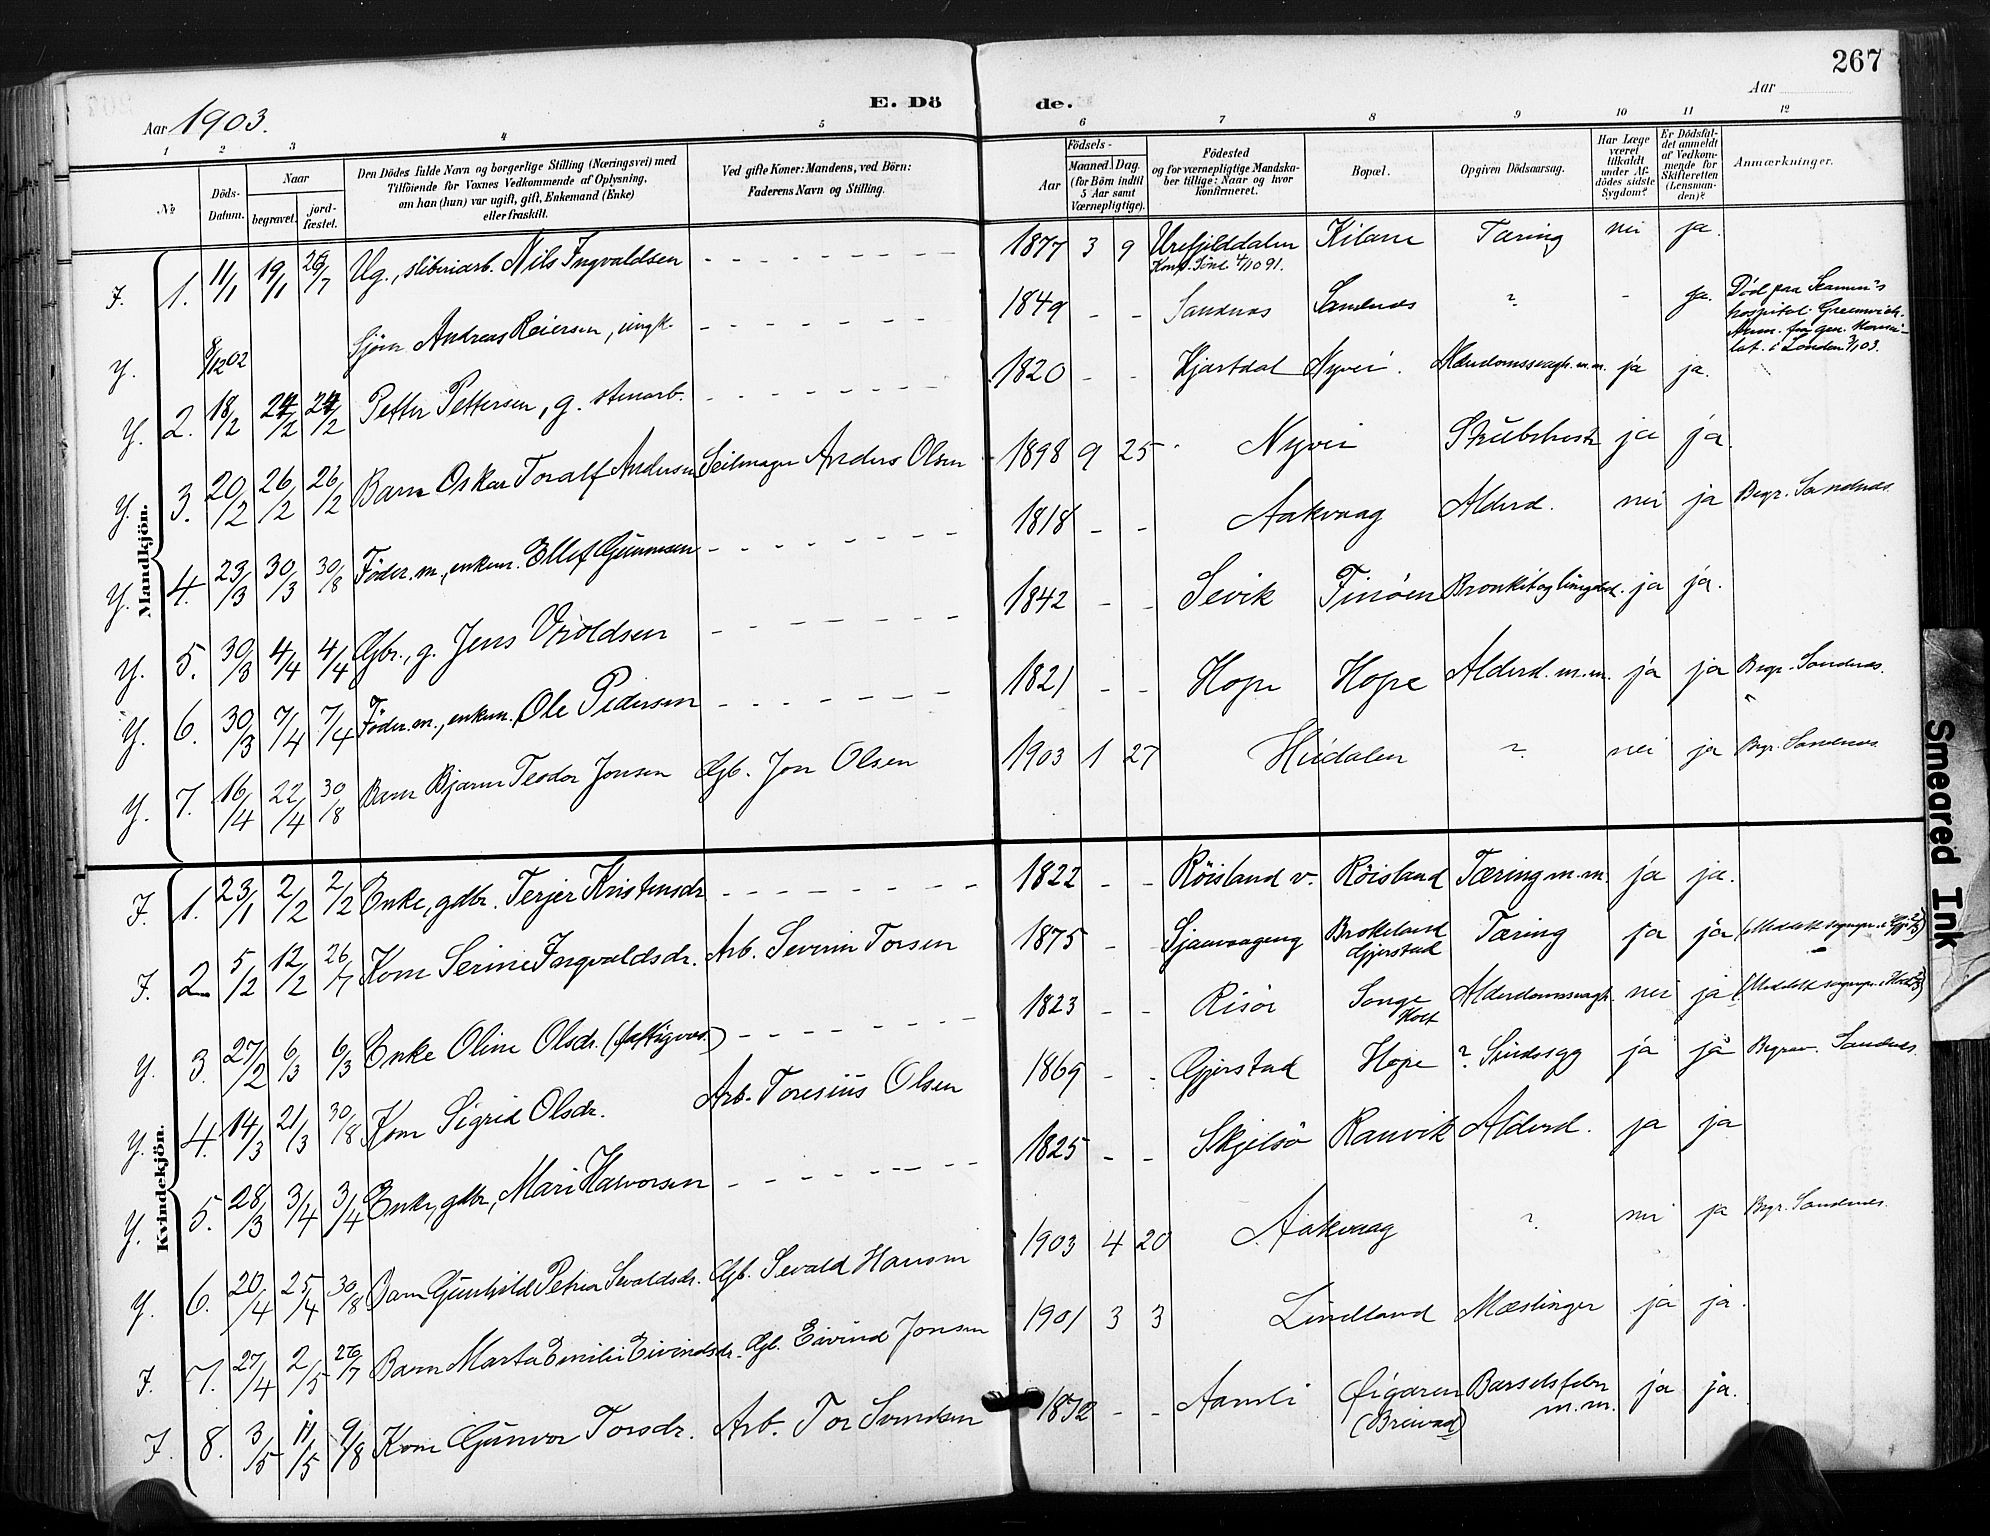 267
E. Döde.
Aar 1903.
Aar
1 2 3 4 5 6 7 8 9 10 11 12
№
Döds-Datum.
Naar
begravet.
jord-fæstet.
Den Dödes fulde Navn og borgerlige Stilling (Næringsvei) med
Tilföiende for Voxnes Vedkommende af Oplysning,
om han (hun) var ugift, gift, Enkemand (Enke)
eller fraskilt.
Ved gifte Koner: Mandens, ved Börn:
Faderens Navn og Stilling.
Födsels-
Aar
Maaned. Dag.
(for Börn indtil
5 Aar samt
Værnepligtige).
Födested
og for værnepligtige Mandska-
ber tillige: Naar og hvor
konfirmeret.
Bopæl.
Opgiven Dödsaarsag.
Har Læge
været
tilkaldt
under Af-
dödes sidste
Sygdom?
Er Dödsfal-
det anmeldt
af Vedkom-
mende for
Skifteretten
(Lensman-
den)?
Anmærkninger.
Mandkjön.
F. 1. 11/1 19/1 26/7 Ug., sliberiarb. Nils Ingvaldsen - - - 1877 3 9 Urefjelddalen Kilane Tæring nei ja.
Konf. Sönd. 4/10 91.
Y. 8/12 02 Sjöm. Andreas Reiersen, ungk. - - - 1849 - - Sandnæs Sandnæs ? - ja. Död paa Seamen's
hospital. Greenwich.
Anm. fra gen. Konsu-
lat. i London 3/1 03.
Y. 2. 18/2 24/2 24/2 Petter Pettersen, g. stenarb. - - - 1820 - - Hjartdal Nyvei. Alderdomssvagh. m.m. ja ja.
Y. 3. 20/2 26/2 26/2 Barn Oskar Toralf Andersen Seilmager Anders Olsen 1898 9 25 Nyvei Strubehoste ja ja.
Y. 4. 23/3 30/3 30/8 Föder. m., enkem. Ellef Gunnersen - - - 1818 - - Aakvaag Alderd. nei ja Begr. Sandnæs.
Y. 5. 30/3 4/4 4/4 Gbr., g. Jens Vroldsen - - - 1842 - - Sevik Finöen Bronkit og lungebet. ja ja.
Y. 6. 30/3 7/4 7/4 Föder. m., enkem. Ole Pedersen - - - 1821 - - Hope Hope Alderd. m.m. ja ja Begr. Sandnæs.
Y. 7. 16/4 22/4 30/8 Barn Bjarne Teodor Jonsen Gb. Jon Olsen 1903 1 27 Huidalen ? nei ja Begr. Sandnæs.
Kvindekjön.
F. 1. 23/1 2/2 2/2 Enke, gdbr. Terjer Kristensdr - - - 1822 - - Röisland v. Röisland Tæring m.m. ja ja.
F. 2. 5/2 12/2 26/7 Kone Serine Ingvaldsdr. Arb. Severin Torsen 1875 - Sjauvaageng Brokeland Gjerstad Tæring ja ja
Y. 3. 27/2 6/3 6/3 Enke Oline Olsdr. (fattigvæs.) - - - 1823 - - Risör Songe Holt Alderdomssvagh. nei ja
Y. 4. 14/3 21/3 30/8 Kone Sigrid Olsdr. Arb. Toresius Olsen 1869 - - Gjerstad Hope ? Sindssyg ja ja Begrav. Sandnæs.
Y. 5. 28/3 3/4 3/4 Enke, gdbr, Mari Halvorsen - - - 1825 - - Skjelsö Ranvik Alderd. ja ja
Y. 6. 20/4 25/4 30/8 Barn Gunhild Petrea Sevaldsdr. Gb. Sevald Hansen 1903 4 20 Aakvaag ? nei ja Begr. Sandnes.
F. 7. 27/4 2/5 26/7 Barn Marta Emilie Eivindsdr. Gb. Eivind Jonsen 1901 3 3 Lindland Mæslinger ja ja.
F. 8. 3/5 11/5 9/8 Kone Gunvor Torsdr. Arb. Tor Svendsen 1872 - - Aamli Öigaren (Breivad) Barselsfeber m.m. ja ja.
Smeared Ink